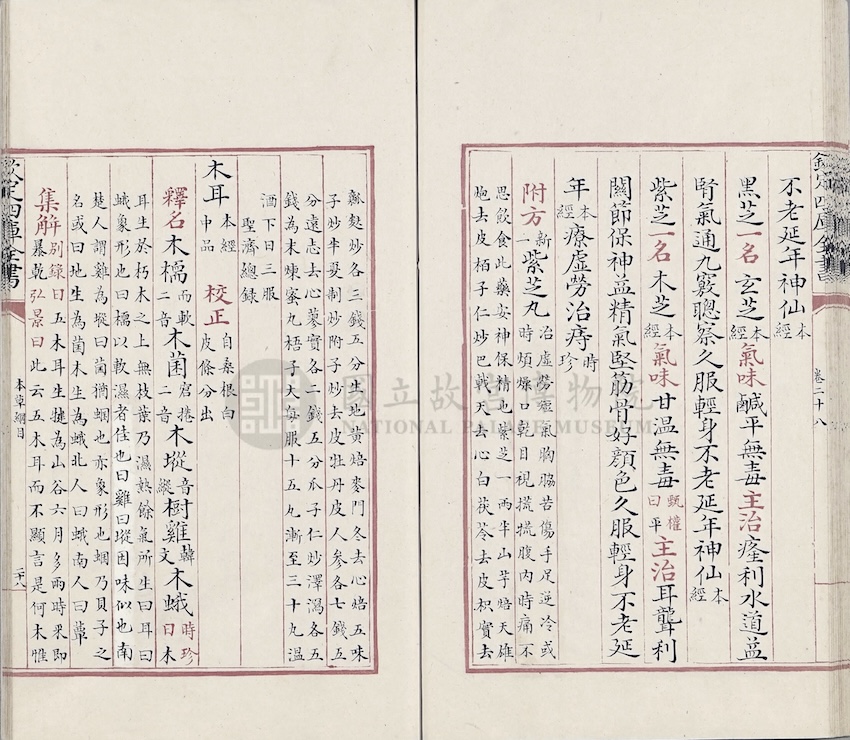 欽定四庫全書
卷二十八
不老延年神仙本經
黑芝一名玄芝本經氣味鹹平無毒主治癃利水道益
腎氣通九竅聰察久服輕身不老延年神仙本經
紫芝一名木芝本經氣味甘温無毒甄權曰平主治耳聾利
關節保神益精氣堅筋骨好顔色久服輕身不老延
年本經療虛勞治痔時珍
附方新一紫芝丸治虛勞短氣胸脇苦傷手足逆冷或
時煩燥口乾目視慌慌腹内時痛不
思飲食此藥安神保精也紫芝一兩半山芋焙天雄
炮去皮栢子仁炒巴戟天去心白茯苓去皮枳實去
瓤麩炒各三錢五分生地黃焙麥門冬去心焙五味
子炒半夏制炒附子炒去皮牡丹皮人參各七錢五
分遠志去心蓼實各二錢五分瓜子仁炒澤瀉各五
錢為末煉蜜丸梧子大每服十五丸漸至三十丸溫
酒下日三服
聖濟總錄
木耳本經中品校正自桑根白皮條分出
釋名木檽而軟二音木菌窘捲二音木樅音縱樹雞韓文木蛾時珍曰木
耳生於朽木之上無枝葉乃濕熱餘氣所生曰耳曰
蛾象形也曰檽以軟濕者佳也曰雞曰樅因味似也南
楚人謂雞為樅曰菌猶蜠也亦象形也蜠乃貝子之
名或曰地生為菌木生為蛾北人曰蛾南人曰蕈
集解別錄曰五木耳生犍為山谷六月多雨時采即
暴乾弘景曰此云五木耳而不顯言是何木惟
欽定四庫全書
本草綱目
國立故宮博物院
NATIONAL PALACE MUSEUM